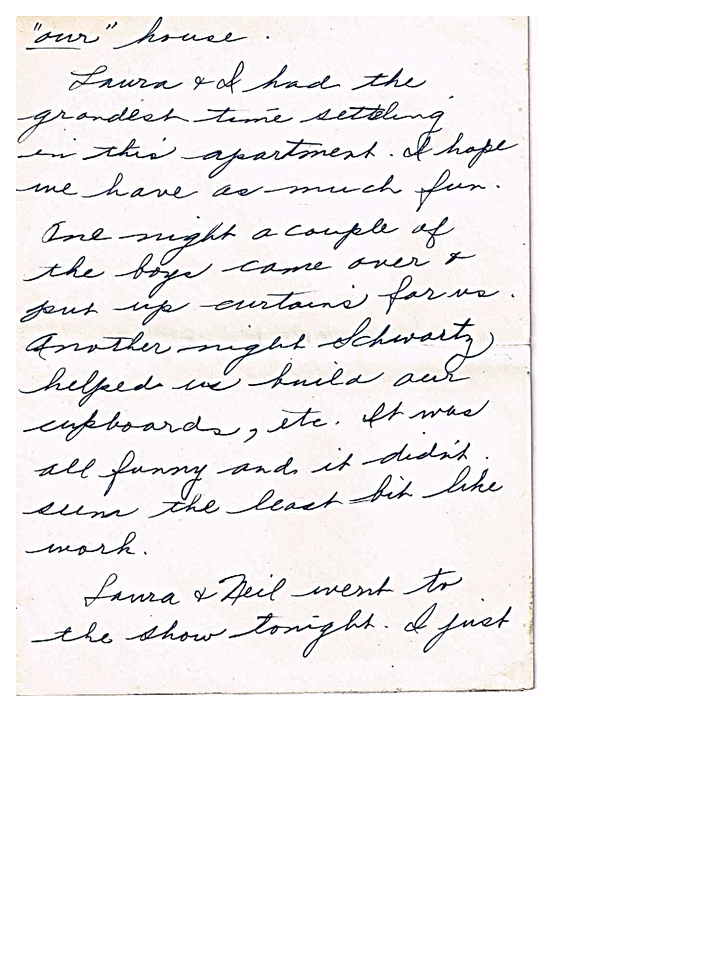 "our" house.
Laura & I had the
grandest time settling
in this apartment. I hope
we have as much fun.
One night a couple of
the boys came over &
put up curtains for us.
Another night Schwartz
helped us build our
cupboards, etc. It was
all funny and it didn't
seem the least bit like
work.
Laura & Neil went to
the show tonight. I just